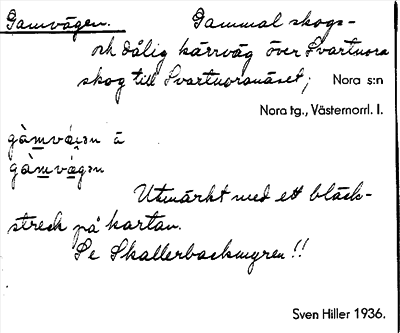 Gamvägen. Gammal skogs-
och dålig kärrväg över Svartnora
skog till Svartnoranäset; Nora s:n
Nora tg., Västernorrl. l.
gàmvä́ᶢən å
gàmvä̀gən
Utmärkt med ett bläck-
streck på kartan.
Se Skallerbackmyren!!
Sven Hiller 1936.